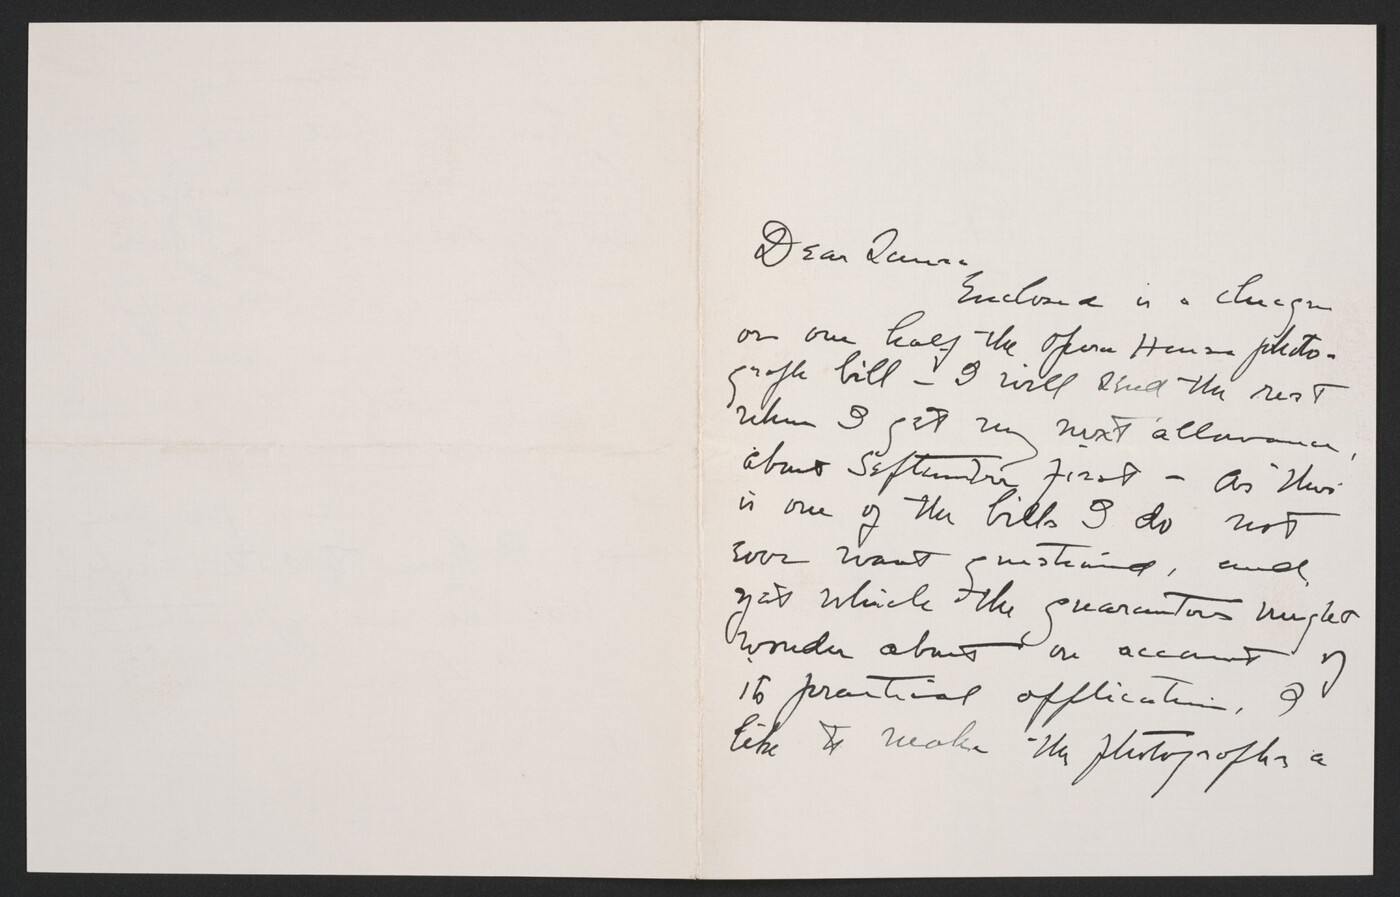 Dear Laura
Enclosed is a cheque
on one half the Opera House photo-
graph bill – I will send the rest
when I get my next allowance,
about September first – As this
is one of the bills I do not
ever want questioned, and
yet which the guarantors might
wonder about on account of
its practical application, I
like to make the photographs a